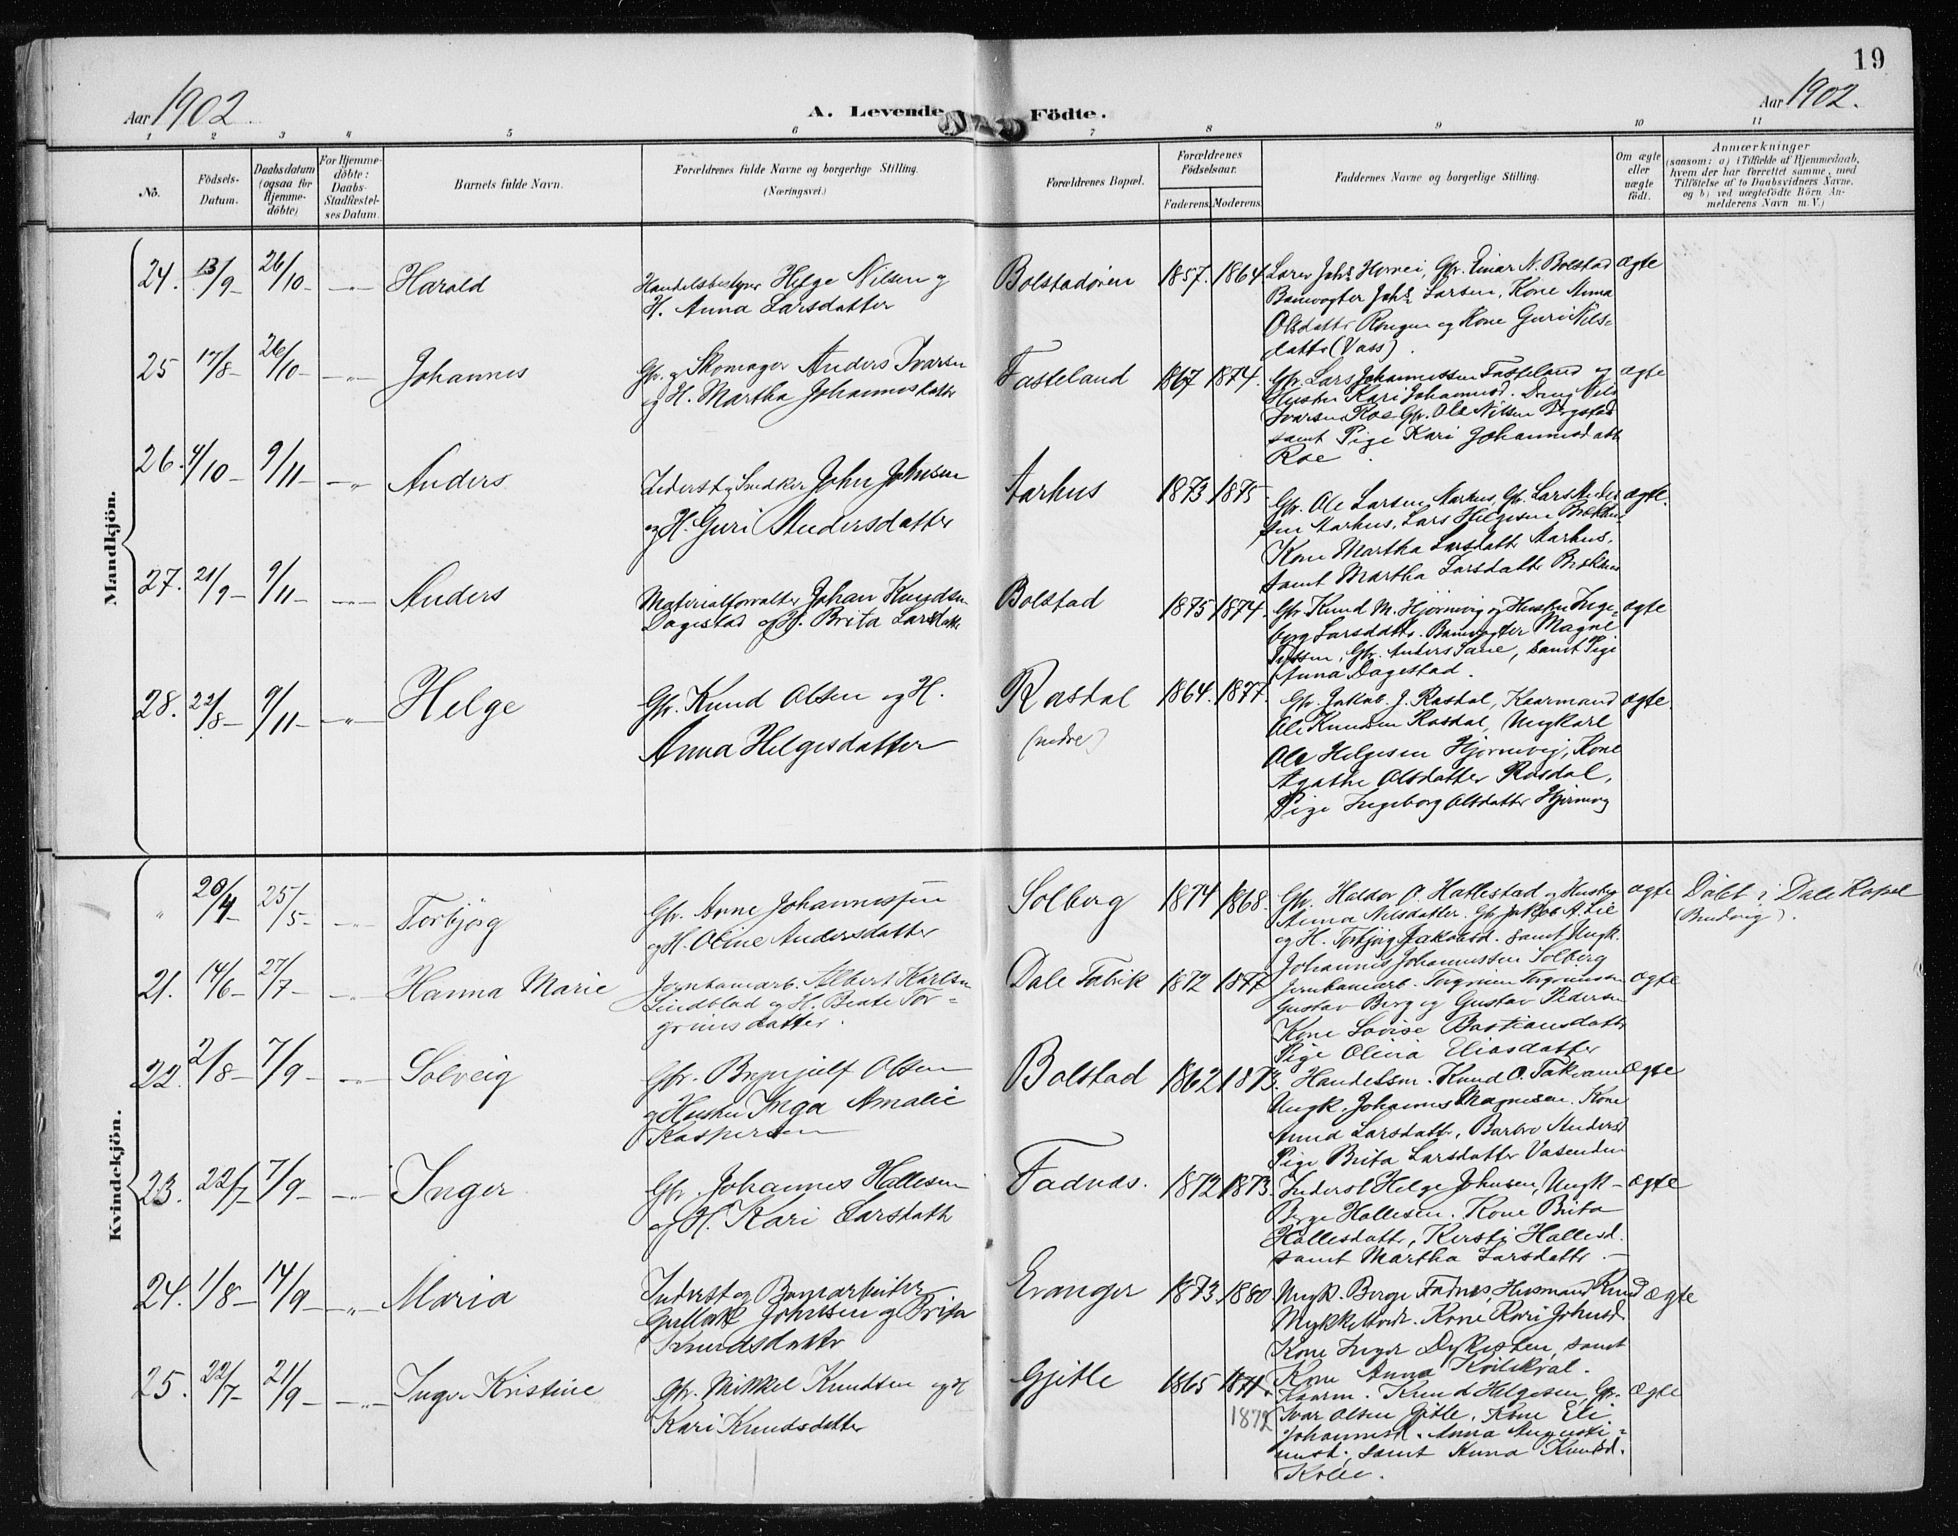 19
Aar 1902.
A. Levende Födte.
Aar 1902.
1 2 3 4 5 6 7 8 9 10 11
No.
Födsels-Datum.
Daabsdatum (ogsaa for Hjemme-döbte)
For Hjemme-döbte: Daabs-Stadfæstel-ses Datum.
Barnets fulde Navn.
Forældrenes fulde Navne og borgerlige Stilling.
(Næringsvei.)
Forældrenes Bopæl.
Forældrenes Födselsaar.
Faderens. Moderens.
Faddernes Navne og borgerlige Stilling.
Om ægte eller uægte födt.
Anmærkninger
(saasom: a) i Tilfælde af Hjemmedaab, hvem der har forrettet samme, med Tilföielse af to Daabsvidners Navne, og b) ved uægtefödte Börn An-melderens Navn m. V.)
Mandkjön.
24. 13/9 26/10 Harald
Handelsbestyrer Helge Nilsen og
H. Anna Larsdatter
Bolstadøren 1857. 1864.
Lærer Johs Horvei, Gbr. Einar N. Bolstad
Banevogter Johs Larsen, Kone Anna
Olsdatter Rongen og Kone Guri Nils-
datter (Vass).
ægte
25 17/8 26/10 Johannes
Gbr. og Skomager Anders Ivarsen
og H. Martha Johannesdatter
Fasteland 1867 1874.
Gbr. Lars Johannessen Fasteland og
Hustru Kari Johannesd. Dreng Nils
Ivarsen Roe Gbr. Ole Nilsen
samt Pige Kari Johannesdatt
Roe.
ægte
26. 4/10 9/11 Anders
Inderst og Snedker John Johnsen
og H. Guri Andersdatter
Aarhus 1873 1875
Gbr. Ole Larsen Aarhus, Gbr. Lars Ander
sen Aarhus, Lars Helgesen
Kone Martha Larsdatter Aarhus,
samt Martha Larsdatter
ægte.
27. 21/9 9/11 Anders
Materialforvalter Johan Knudsen
Dagestad og H. Brita Larsdatter
Bolstad 1875 1874.
Gbr. Knud M. Hjørnevig og Hustru Inge-
borg Larsdatter. Banevogter Magne
Gbr. Anders Sane, samt Pige
Anna Dagestad.
ægte
28. 22/8 9/11 Helge
Gbr. Knud Olsen og H.
Anna Helgesdatter
Rasdal
(nedre)
1864. 1877.
Gbr. Jakob J. Rasdal, Kaarmand
Ole Knudsen Rasdal, Ungkarl
Ole Helgesen Hjørnevig, Kone
Agathe Olsdatter Rasdal,
Pige Ingeborg Olsdatter Hjørnevig
ægte.
Kvindekjön.
" 20/4 25/5 Torbjørg
Gbr. Arne Johannessen
og H. Oline Andersdatter
Solberg 1874 1868.
Gbr. Haldor O. Hatlestad og Hustru
Anna Nilsdatter. Gbr Jakob A. Lie
og H. Torbjørg Jakobsd. samt Ungk.
Johannes Johannessen Solberg
ægte
Døbt i Dale Kapel
21. 14/6 27/7 Hanna Marie
Jernbanearb. Albert Karlsen
Lindblad og H. Beate Tor-
grimsdatter.
Dale Fabrik 1872 1877
Jernbanearb. Torgrim Torgrimsen
Gustav Berg og Gustav Pedersen
Kone Lovise Bastiansdatter
Pige Olivia Eliasdatter
ægte
22. 2/8 7/9 Solveig
Gbr. Brynjulf Olsen
og Hustru Inga Amalie
Kaspersen
Bolstad 1862 1873.
Handelsm. Knud O. Takvam
Ungk. Johannes Magnesen. Kone
Anna Larsdatter, Barbro Andersd
Pige Brita Larsdatter Vasenden
Ægte
23. 22/7 7/9 Inger
Gbr. Johannes Hallesen
og H. Kari Larsdatter
Fadnæs. 1872 1873.
Inderst Helge Johnsen, Ungk
Berge Hallesen. Kone Brita
Hallesdatter, Kersti Hallesd.
samt Martha Larsdatter.
ægte
24. 1/8 14/9 Maria
Inderst og Banearbeider
Johnsen og Brita
Knudsdatter
Evanger 1873 1880
Ungk. Berge Fadnes, Husmand Knud
Kone Kari Johnsd
Kone Inger samt
Kone Anna
ægte
25. 22/7 21/9 Inger Kristine
Gbr. Mikkel Knudsen og H
Kari Knudsdatter
Gjitle 1865 1871.
1872
Kaarm. Knud Helgesen, Gbr.
Ivar Olsen Gjitle. Kone Eli
Johannesd. Anna Augusti-
nusd. samt Anna Knudsd.
ægte